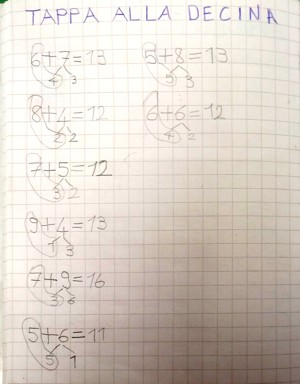 TAPPA ALLA DECINA
6+7=13
4 3
8+4=12
2 2
7+5=12
3 2
9+4=13
1 3
7+9=16
3 6
5+6=11
5 1
5+8=13
5 3
6+6=12
4 2